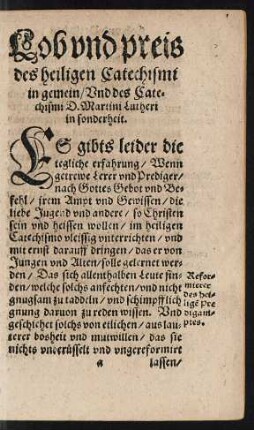 Lob vnd preis
des heiligen Catechismi
in gemein / Vnd des Cate-
chismi D. Martini Lutheri
in sonderheit.
ES gibts leider die
tegliche erfahrung / Wenn
getrewe Lerer vnd Prediger /
nach Gottes Gebot vnd Be-
fehl / jrem Ampt vnd Gewissen / die
liebe Jugend vnd andere / so Christen
sein vnd heissen wollen / im heiligen
Catechismo vleissig vnterrichten / vnd
mit ernst darauff dringen / das er von
Jungen vnd Alten / solle gelernet wer-
den / Das sich allenthalben Leute fin-
den / welche solchs anfechten / vnd nicht
gnugsam zu taddeln / vnd schimpfflich
gnung daruon zu reden wissen. Vnd
geschichet solchs von etlichen / aus lau-
terer bosheit vnd mutwillen / das sie
nichts vngerüffelt vnd vngereformirt
a lassen /
Refor-
mierer
des hei-
ligē Pre
digam-
ptes.